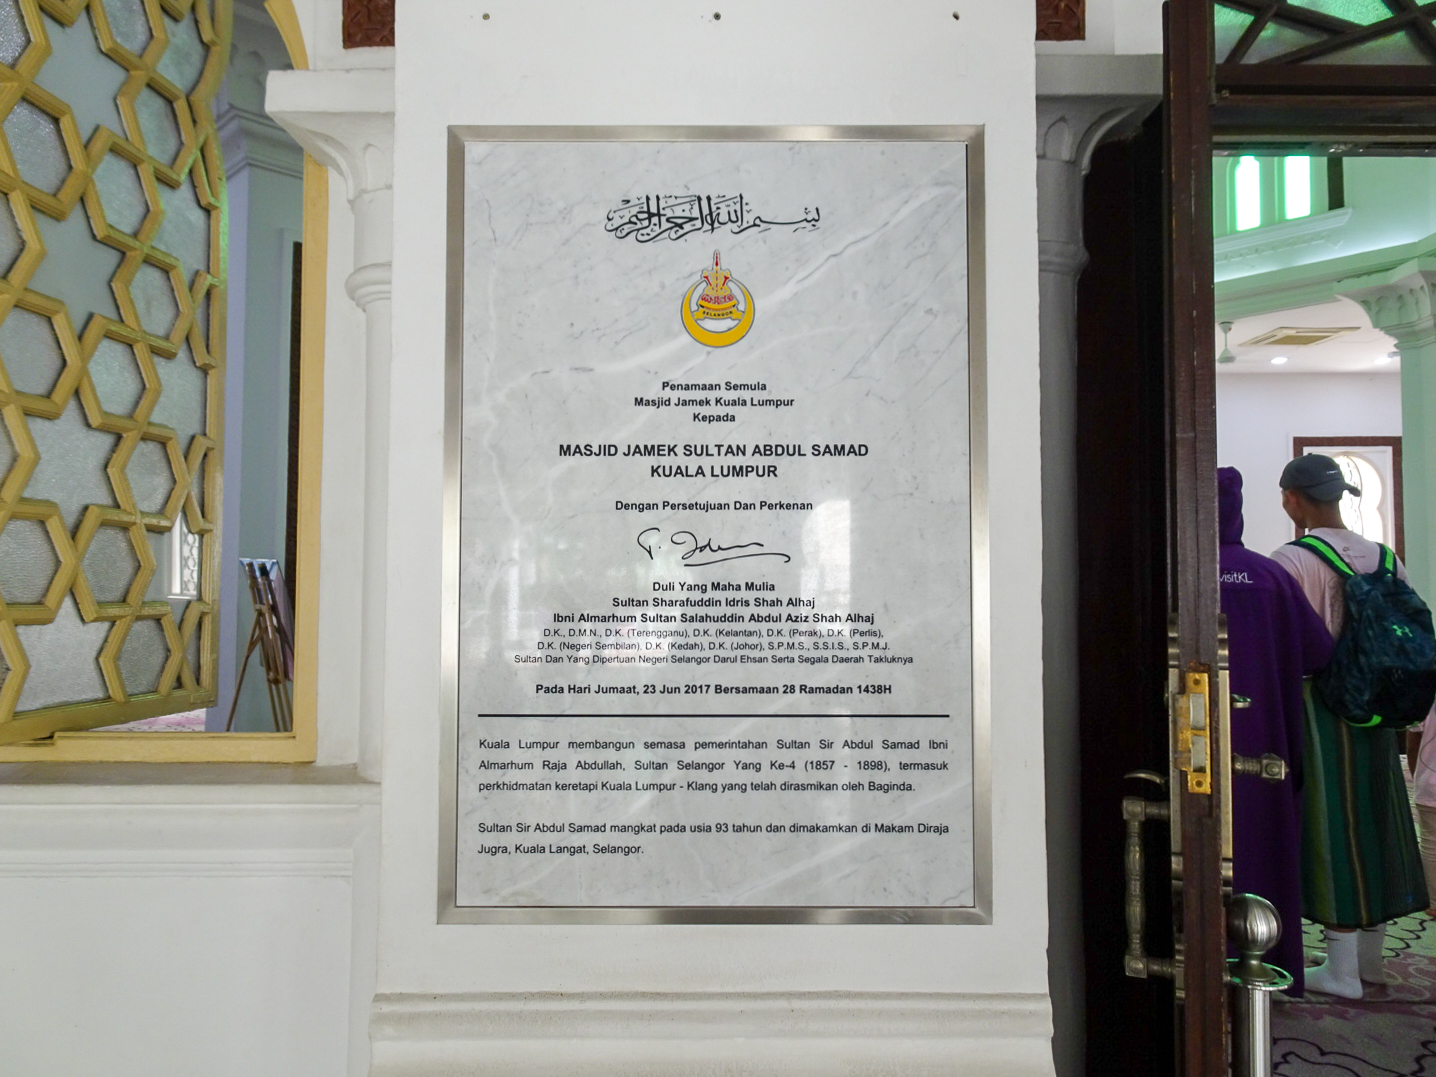 بسم الله الرحمن الرحيم
SELANGOR
Penamaan Semula
Masjid Jamek Kuala Lumpur
Kepada
MASJID JAMEK SULTAN ABDUL SAMAD
KUALA LUMPUR
Dengan Persetujuan Dan Perkenan
Duli Yang Maha Mulia
Sultan Sharafuddin Idris Shah Alhaj
Ibni Almarhum Sultan Salahuddin Abdul Aziz Shah Alhaj
D.K., D.M.N., D.K. (Terengganu), D.K. (Kelantan), D.K. (Perak), D.K. (Perlis),
D.K. (Negeri Sembilan), D.K. (Kedah), D.K. (Johor), S.P.M.S., S.S.I.S., S.P.M.J.
Sultan Dan Yang Dipertuan Negeri Selangor Darul Ehsan Serta Segala Daerah Takluknya
Pada Hari Jumaat, 23 Jun 2017 Bersamaan 28 Ramadan 1438H
Kuala Lumpur membangun semasa pemerintahan Sultan Sir Abdul Samad Ibni
Almarhum Raja Abdullah, Sultan Selangor Yang Ke-4 (1857 - 1898), termasuk
perkhidmatan keretapi Kuala Lumpur - Klang yang telah dirasmikan oleh Baginda.
Sultan Sir Abdul Samad mangkat pada usia 93 tahun dan dimakamkan di Makam Diraja
Jugra, Kuala Langat, Selangor.
visitKL